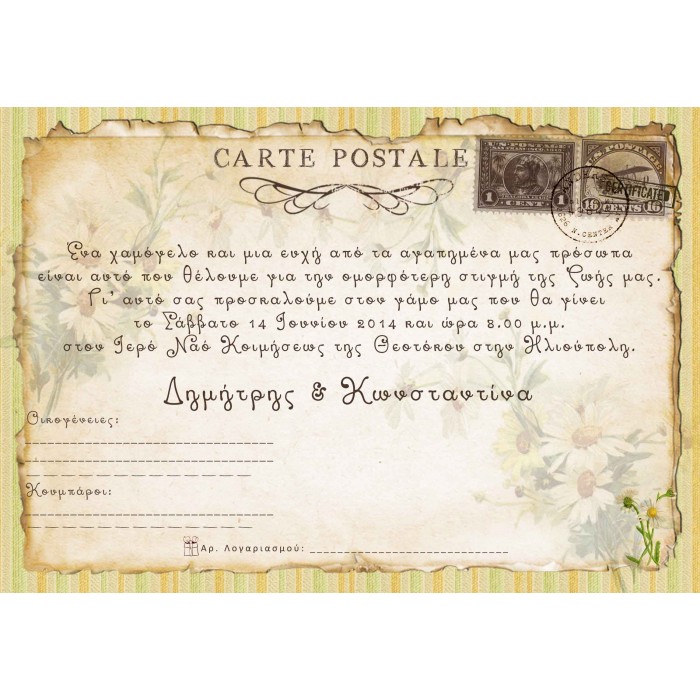 CARTE POSTALE
U·S·POSTAGE
SAN FRANCISCO 1915
1 CENT 1
U·S·POSTAGE
CERTIFICATED
16 CENTS 16
N. CENTER
Ένα χαμόγελο και μια ευχή από τα αγαπημένα μας πρόσωπα
είναι αυτό που θέλουμε για την ομορφότερη στιγμή της ζωής μας.
Γι' αυτό σας προσκαλούμε στον γάμο μας που θα γίνει
το Σάββατο 14 Ιουνίου 2014 και ώρα 8.00 μ.μ.
στον Ιερό Ναό Κοιμήσεως της Θεοτόκου στην Ηλιούπολη.
Δημήτρης & Κωνσταντίνα
Οικογένειες:
Κουμπάροι:
Αρ. Λογαριασμού: